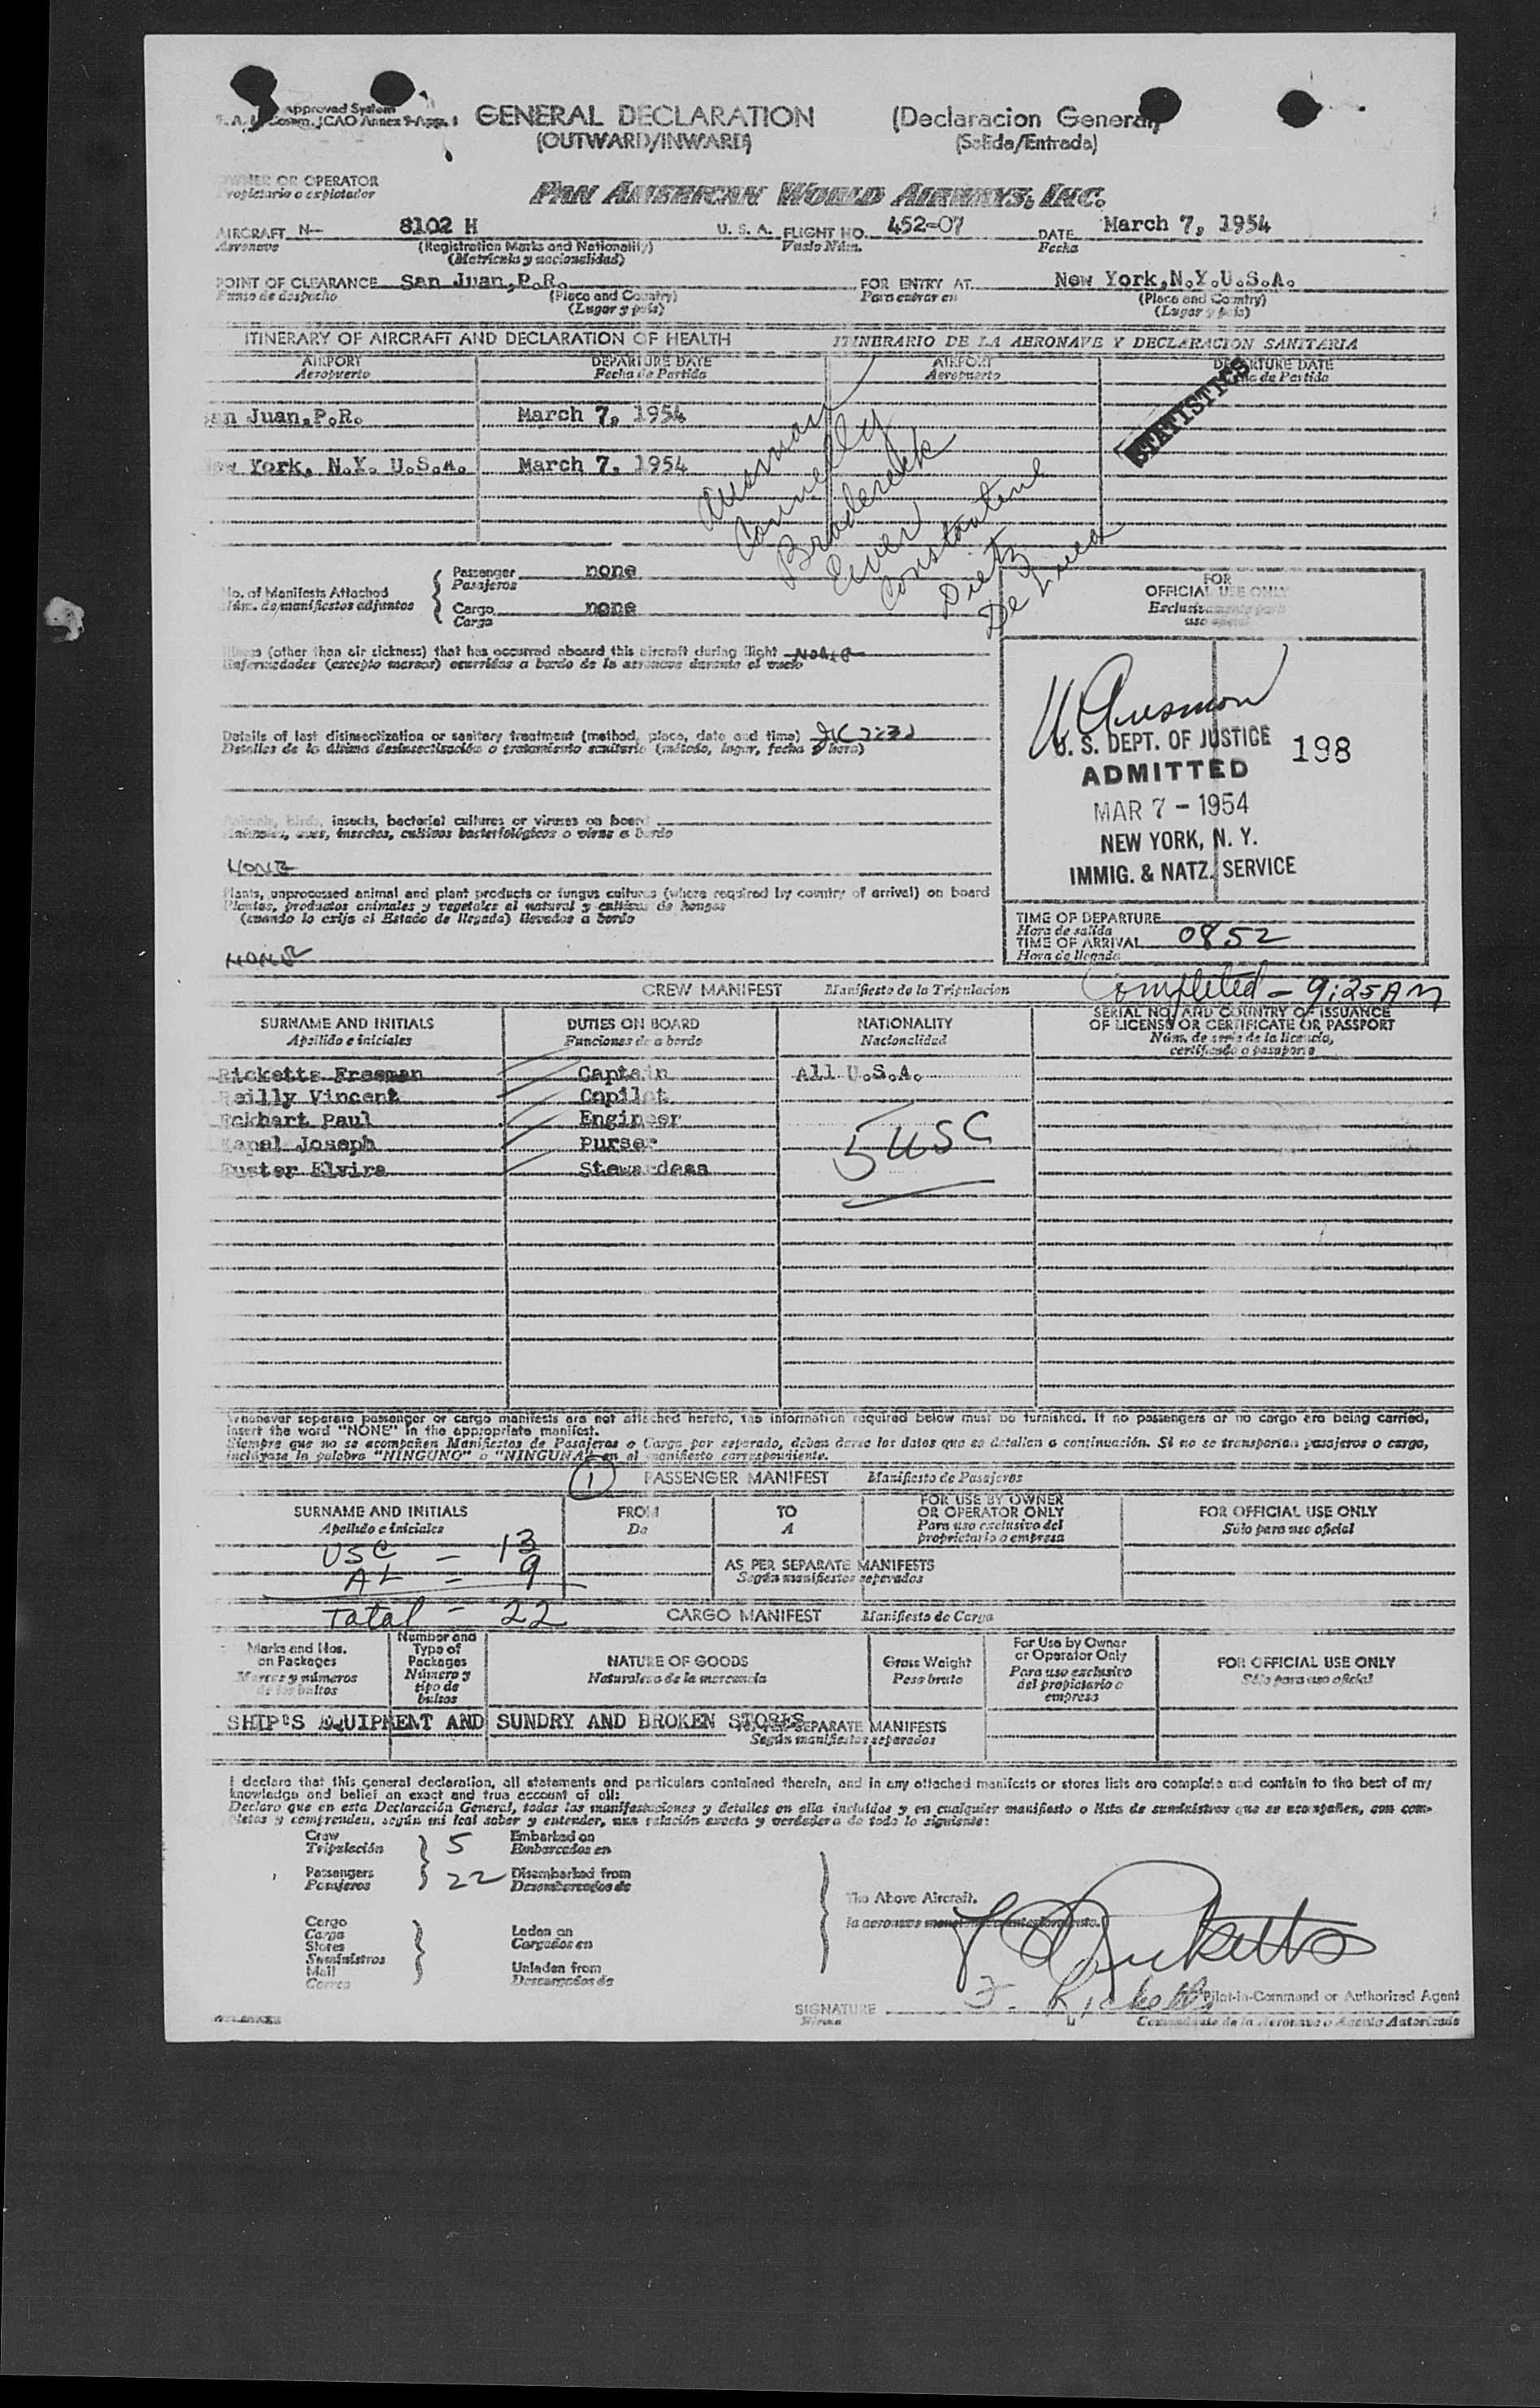 Approved System
Comm. ICAO Annex 9-App. 1
GENERAL DECLARATION (Declaracion General)
(OUTWARD/INWARD) (Salida/Entrada)
OWNER OR OPERATOR
Propietario o explotador
PAN AMERICAN WORLD AIRWAYS, INC.
AIRCRAFT N- 8102 H U. S. A. FLIGHT NO. 452-07 DATE March 7, 1954
Aeronave (Registration Marks and Nationality) Vuelo Núm. Fecha
(Matrícula y nacionalidad)
POINT OF CLEARANCE San Juan,P.R. FOR ENTRY AT New York,N.Y.U.S.A.
Punto de despacho (Place and Country) Para entrar en (Place and Country)
(Lugar y país) (Lugar y país)
ITINERARY OF AIRCRAFT AND DECLARATION OF HEALTH ITINERARIO DE LA AERONAVE Y DECLARACION SANITARIA
AIRPORT DEPARTURE DATE AIRPORT DEPARTURE DATE
Aeropuerto Fecha de Partida Aeropuerto Fecha de Partida
STATISTICS
San Juan,P.R. March 7, 1954
New York, N.Y. U.S.A. March 7, 1954
Ausman
Connelly
Broderick
Ewen
Constantine
Dietz
De Luca
No. of Manifests Attached
Núm. de manifiestos adjuntos
Passenger none
Pasajeros
Cargo none
Carga
FOR
OFFICIAL USE ONLY
Exclusivamente para
uso oficial
Illness (other than air sickness) that has occurred aboard this aircraft during flight NONE
Enfermedades (excepto mareos) ocurridas a bordo de la aeronave durante el vuelo
Details of last disinsectization or sanitary treatment (method, place, date and time)
Detalles de la última desinsectización o tratamiento sanitario (método, lugar, fecha y hora)
Animals, birds, insects, bacterial cultures or viruses on board
Animales, aves, insectos, cultivos bacteriológicos o virus a bordo
NONE
Plants, unprocessed animal and plant products or fungus cultures (where required by country of arrival) on board
Plantas, productos animales y vegetales al natural y cultivos de hongos
(cuando lo exija el Estado de llegada) llevados a bordo
NONE
W Ausman
U. S. DEPT. OF JUSTICE 198
ADMITTED
MAR 7 - 1954
NEW YORK, N. Y.
IMMIG. & NATZ. SERVICE
TIME OF DEPARTURE
Hora de salida
TIME OF ARRIVAL 0852
Hora de llegada
CREW MANIFEST Manifiesto de la Tripulacion Completed - 9:25 AM
SURNAME AND INITIALS DUTIES ON BOARD NATIONALITY SERIAL NO. AND COUNTRY OF ISSUANCE
OF LICENSE OR CERTIFICATE OR PASSPORT
Apellido e iniciales Funciones de a bordo Nacionalidad Núm. de serie de la licencia,
certificado o pasaporte
Ricketts Freeman Captain All U.S.A.
Reilly Vincent Copilot
Eckhart Paul Engineer
Joseph Purser
Fuster Elvira Stewardess
5 USC
Whenever separate passenger or cargo manifests are not attached hereto, the information required below must be furnished. If no passengers or no cargo are being carried,
insert the word "NONE" in the appropriate manifest.
Siempre que no se acompañen Manifiestos de Pasajeros o Carga por separado, deben darse los datos que se detallan a continuación. Si no se transportan pasajeros o carga,
inclúyase la palabra "NINGUNO" o "NINGUNA" en el manifiesto correspondiente.
1 PASSENGER MANIFEST Manifiesto de Pasajeros
SURNAME AND INITIALS FROM TO FOR USE BY OWNER
OR OPERATOR ONLY FOR OFFICIAL USE ONLY
Apellido e iniciales De A Para uso exclusivo del
proprietario o empresa Sólo para uso oficial
USC - 13
AL = 9
AS PER SEPARATE MANIFESTS
Según manifiestos separados
Total - 22
CARGO MANIFEST Manifiesto de Carga
Marks and Nos.
on Packages
Marcas y números
de los bultos
Number and
Type of
Packages
Número y
tipo de
bultos
NATURE OF GOODS
Naturaleza de la mercancía
Gross Weight
Peso bruto
For Use by Owner
or Operator Only
Para uso exclusivo
del propietario o
empresa
FOR OFFICIAL USE ONLY
Sólo para uso oficial
SHIP'S EQUIPMENT AND SUNDRY AND BROKEN STORES
AS PER SEPARATE MANIFESTS
Según manifiestos separados
I declare that this general declaration, all statements and particulars contained therein, and in any attached manifests or stores lists are complete and contain to the best of my
knowledge and belief an exact and true account of all:
Declaro que en esta Declaración General, todas las manifestaciones y detalles en ella incluidos y en cualquier manifiesto o lista de suministros que se acompañen, son com-
pletos y comprenden, según mi leal saber y entender, una relación exacta y verdadera de todo lo siguiente:
Crew 5 Embarked on
Tripulación Embarcados en
Passengers 22 Disembarked from
Pasajeros Desembarcados de
Cargo
Carga
Stores
Suministros
Mail
Correo
Laden on
Cargados en
Unladen from
Descargados de
The Above Aircraft.
la aeronave mencionada anteriormente.
F Ricketts
F. Ricketts
SIGNATURE Pilot-in-Command or Authorized Agent
Firma Comandante de la Aeronave o Agente Autorizado